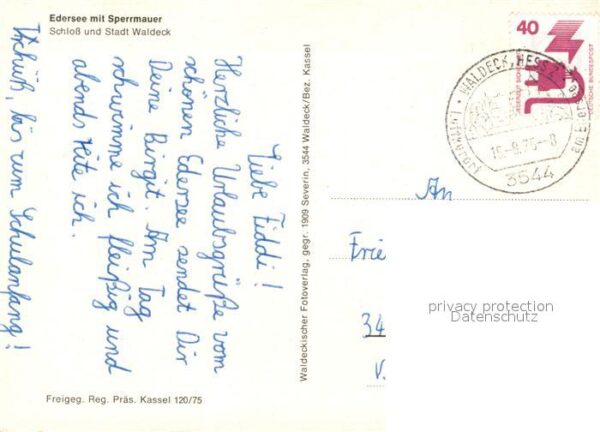 Edersee mit Sperrmauer
Schloß und Stadt Waldeck
Liebe Fiddi!
Herzliche Urlaubsgrüße vom
schönen Edersee sendet Dir
Deine Birgit. Am Tag
schwimme ich fleißig und
abends reite ich.
Tschüß, bis zum Schulanfang!
Freigeg. Reg. Präs. Kassel 120/75
Waldeckischer Fotoverlag, gegr. 1909 Severin, 3544 Waldeck/Bez. Kassel
40
DEUTSCHE BUNDESPOST
WALDECK, HESS 2
Luftkurort
am Edersee
15.-9.76.-8
3544
An
Frie
34
V.
privacy protection
Datenschutz